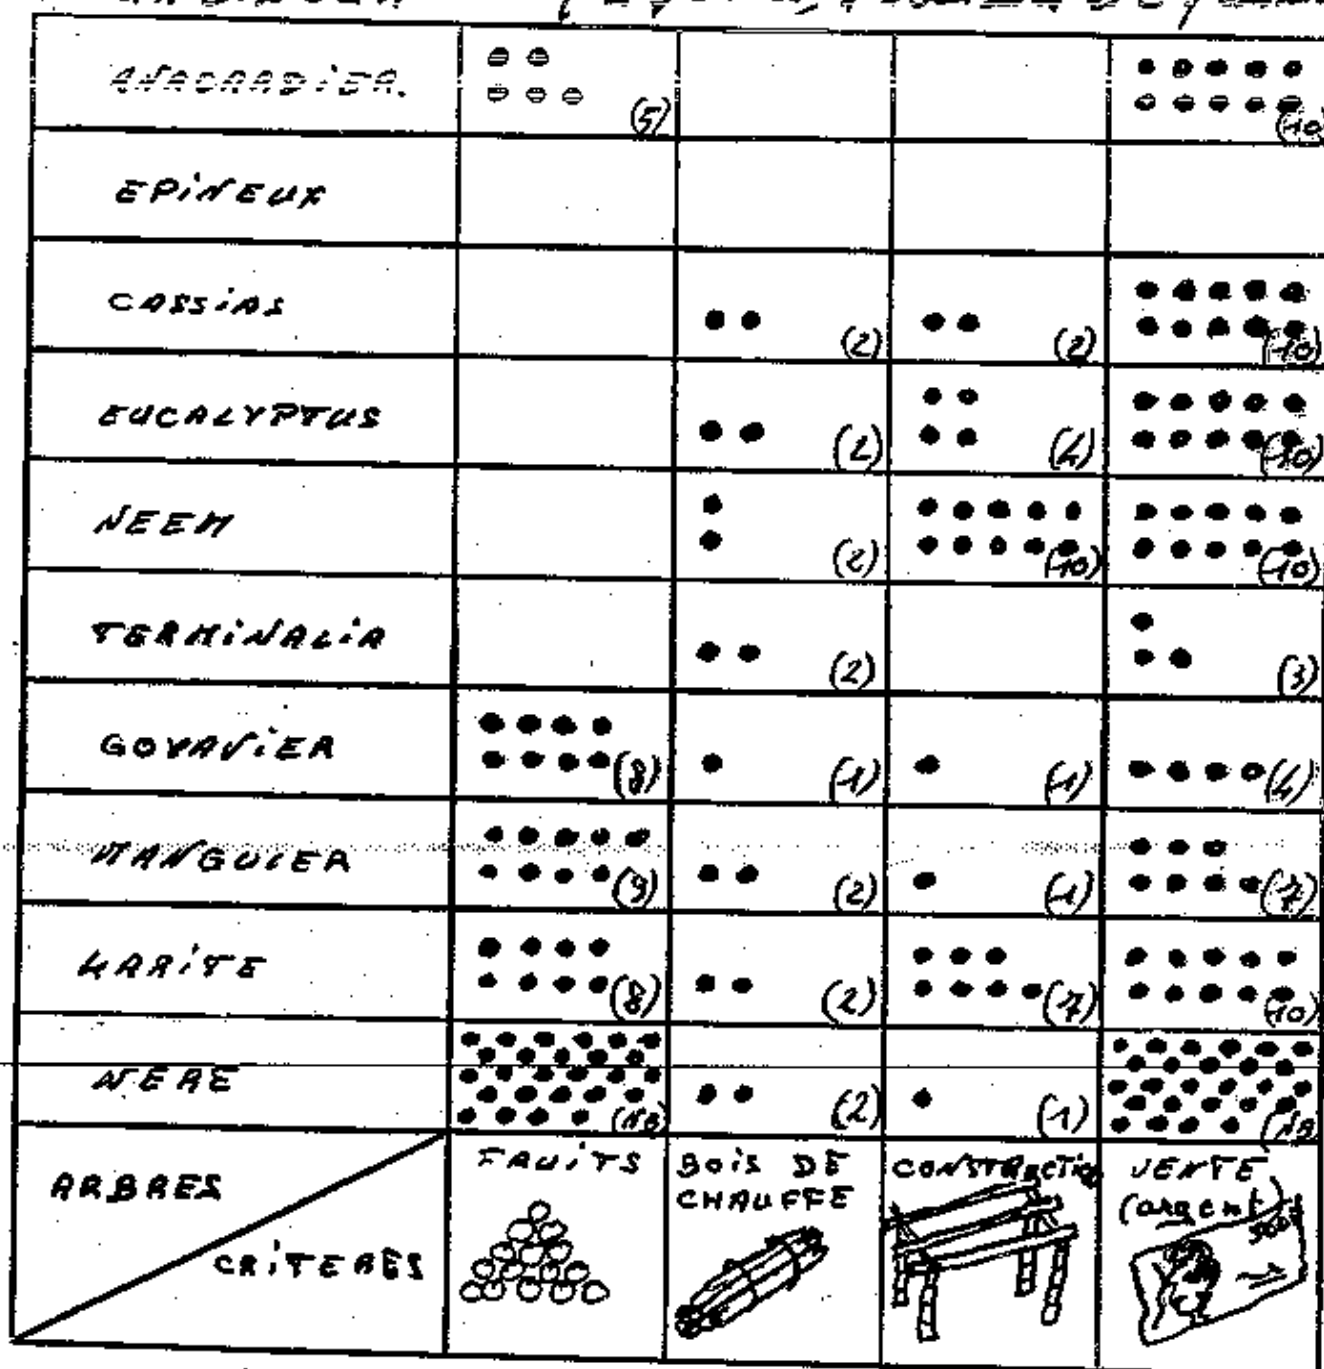 ANACARDIER. (5) (10)
EPINEUX
CASSIAS (2) (2) (10)
EUCALYPTUS (2) (4) (10)
NEEM (2) (10) (10)
TERMINALIA (2) (3)
GOYAVIER (8) (1) (1) (4)
MANGUIER (9) (2) (1) (7)
KARITE (8) (2) (7) (10)
NERE (NB) (2) (1) (NB)
ARBRES
CRITERES
FRUITS
BOIS DE
CHAUFFE
CONSTRUCTION
VENTE
(argent)